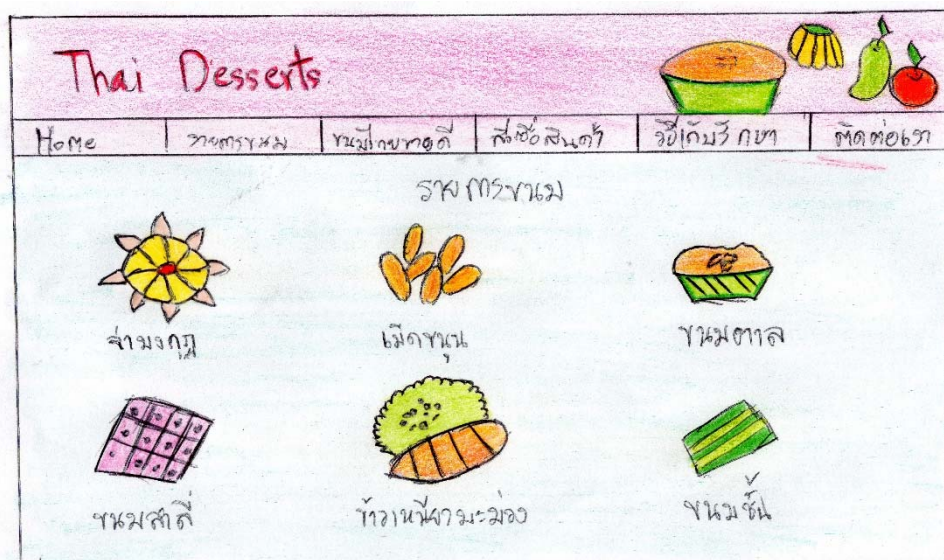 Thai Desserts
Home รายการขนม ขนมไทยขายดี สั่งซื้อสินค้า วิธีเก็บรักษา ติดต่อเรา
รายการขนม
จ่ามงกุฎ เม็ดขนุน ขนมตาล
ขนมสาลี่ ข้าวเหนียวมะม่วง ขนมชั้น